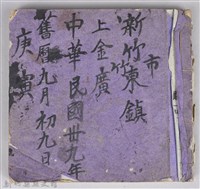 新竹市竹東鎮
上金廣
中華民國卅九年
舊曆九月初九日
庚寅